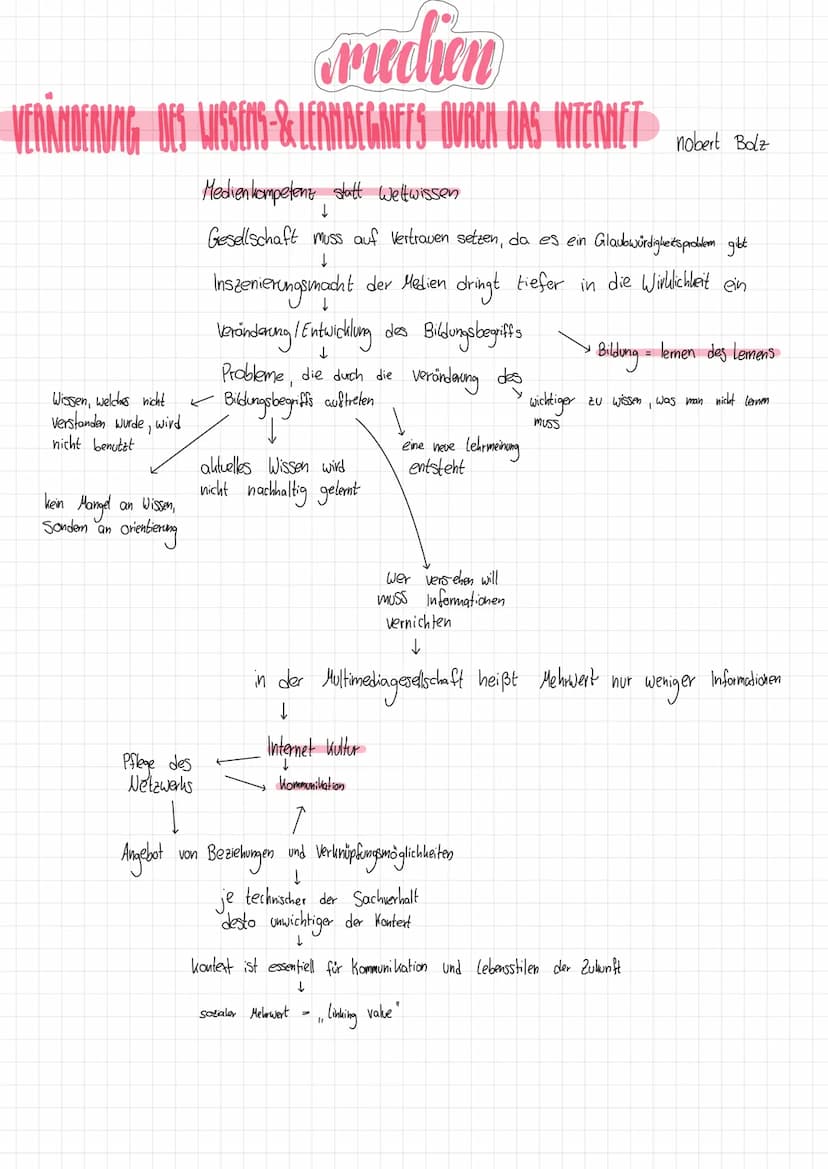 medien
VERÄNDERUNG DES WISSENS-& LERNBEGRIFFS DURCH DAS INTERNET
nobert Bolz
Medienkompetenz statt Weltwissen
↓
Gesellschaft muss auf Vertrauen setzen, da es ein Glaubwürdigkeitsproblem gibt
↓
Inszenierungsmacht der Medien dringt tiefer in die Wirklichkeit ein
↓
Veränderung/Entwicklung des Bildungsbegriffs
Bildung = lernen des Lernens
↓
Probleme, die durch die Veränderung des
Bildungsbegriffs auftreten
wichtiger zu wissen, was man nicht lernen
muss
Wissen, welches nicht
verstanden wurde, wird
nicht benutzt
eine neue Lehrmeinung
entsteht
aktuelles Wissen wird
nicht nachhaltig gelernt
kein Mangel an Wissen,
Sondern an Orientierung
Wer verstehen will
muss Informationen
vernichten
↓
in der Multimediagesellschaft heißt Mehrwert nur weniger Informationen
↓
Internet Kultur
↓
Pflege des
Netzwerks
Kommunikation
Angebot von Beziehungen und Verknüpfungsmöglichkeiten
↓
je technischer der Sachverhalt
desto unwichtiger der Kontext
↓
Kontext ist essentiell für Kommunikation und Lebensstilen der Zukunft
↓
sozialer Mehrwert = „linking value"